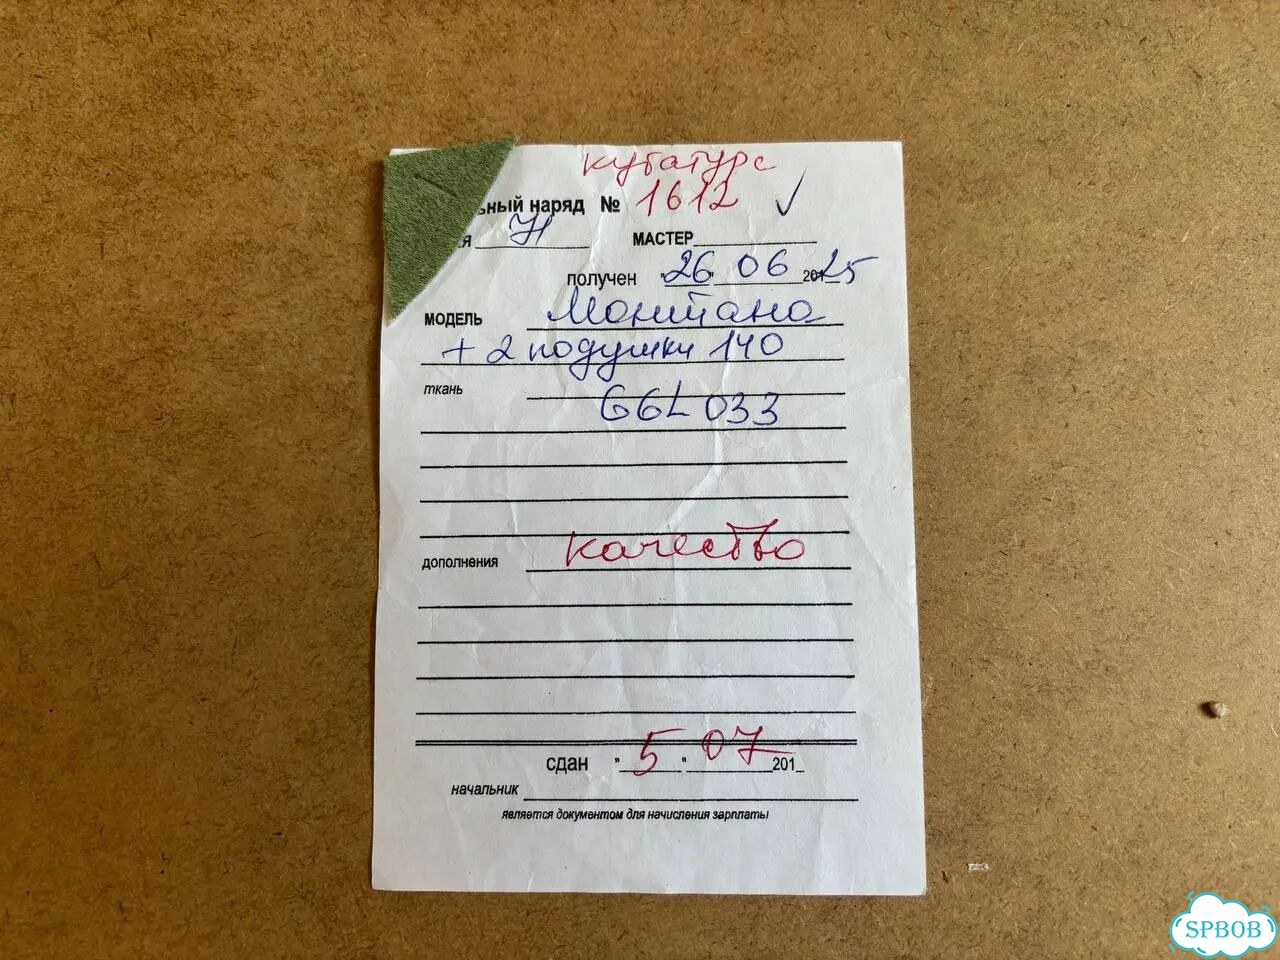 кубатурс
ьный наряд № 1612 ✓
я Н МАСТЕР
получен "26" 06 2025
МОДЕЛЬ Монтана
+ 2 подушки 140
ткань
66L 033
дополнения качество
сдан "5" 07 201_
начальник
является документом для начисления зарплаты
SPBOB